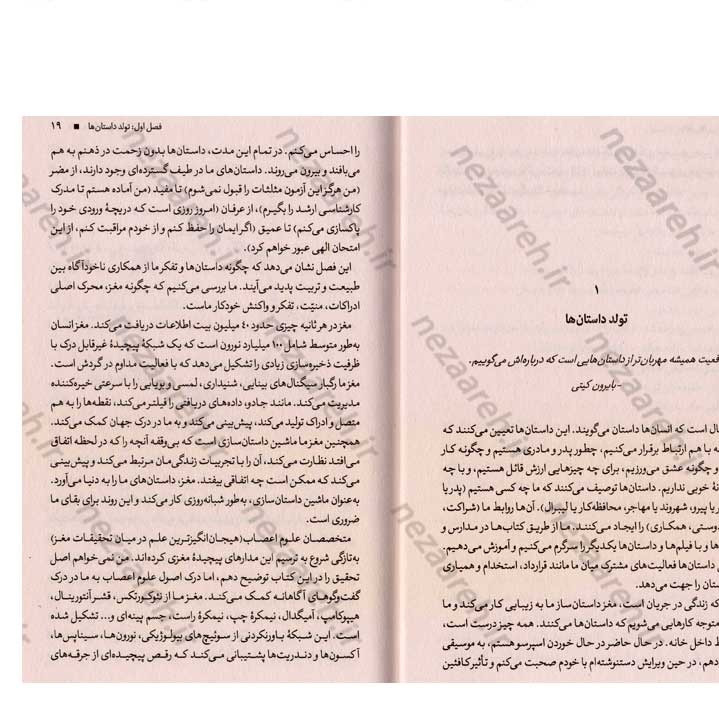 ۱
تولد داستان‌ها
قعیت همیشه مهربان‌تر از داستان‌هایی است که درباره‌اش می‌گوییم.
-بایرون کیتی
ال است که انسان‌ها داستان می‌گویند. این داستان‌ها تعیین می‌کنند که
ه با هم ارتباط برقرار می‌کنیم، چطور پدر و مادری هستیم و چگونه کار
و چگونه عشق می‌ورزیم، برای چه چیزهایی ارزش قائل هستیم، و با چه
نهٔ خوبی نداریم. داستان‌ها توصیف می‌کنند که ما چه کسی هستیم (پدر یا
ر یا پیرو، شهروند یا مهاجر، محافظه‌کار یا لیبرال). آن‌ها روابط ما (شراکت،
دوستی، همکاری) را ایجاد می‌کنند. ما از طریق کتاب‌ها در مدارس و
ها و با فیلم‌ها و داستان‌ها یکدیگر را سرگرم می‌کنیم و آموزش می‌دهیم.
ی داستان‌ها فعالیت‌های مشترک میان ما مانند قرارداد، استخدام و همیاری
ستان را جهت می‌دهد.
که زندگی در جریان است، مغز داستان‌ساز ما به زیبایی کار می‌کند و ما
متوجه کارهایی می‌شویم که داستان‌ها می‌کنند. همه چیز درست است،
ط داخل خانه. در حال حاضر در حال خوردن اسپرسو هستم، به موسیقی
دهم، در حین ویرایش دستنوشته‌ام با خودم صحبت می‌کنم و تأثیر کافئین
فصل اول: تولد داستان‌ها ■ ۱۹
را احساس می‌کنم. در تمام این مدت، داستان‌ها بدون زحمت در ذهنم به هم
می‌بافند و بیرون می‌روند. داستان‌های ما در طیف گسترده‌ای وجود دارند، از مضر
(من هرگز این آزمون مثلثات را قبول نمی‌شوم) تا مفید (من آماده هستم تا مدرک
کارشناسی ارشد را بگیرم)، از عرفان (امروز روزی است که دریچهٔ ورودی خود را
پاکسازی می‌کنم) تا عمیق (اگر ایمان را حفظ کنم و از خودم مراقبت کنم، از این
امتحان الهی عبور خواهم کرد).
این فصل نشان می‌دهد که چگونه داستان‌ها و تفکر ما از همکاری ناخودآگاه بین
طبیعت و تربیت پدید می‌آیند. ما بررسی می‌کنیم که چگونه مغز، محرک اصلی
ادراکات، منیّت، تفکر و واکنش خودکار ماست.
مغز در هر ثانیه چیزی حدود ۴۰ میلیون بیت اطلاعات دریافت می‌کند. مغز انسان
به‌طور متوسط شامل ۱۰۰ میلیارد نورون است که یک شبکهٔ پیچیدهٔ غیرقابل درک با
ظرفیت ذخیره‌سازی زیادی را تشکیل می‌دهد که با فعالیت مداوم در گردش است.
مغز ما رگبار سیگنال‌های بینایی، شنیداری، لمسی و بویایی را با سرعتی خیره‌کننده
مدیریت می‌کند. مانند جادو، داده‌های دریافتی را فیلتر می‌کند، نقطه‌ها را به هم
متصل و ادراک تولید می‌کند، پیش‌بینی می‌کند و به ما در درک جهان کمک می‌کند.
همچنین مغز ما ماشین داستان‌سازی است که بی‌وقفه آنچه را که در لحظه اتفاق
می‌افتد نظارت می‌کند، آن را با تجربیات زندگی‌مان مرتبط می‌کند و پیش‌بینی
می‌کند که ممکن است چه اتفاقی بیفتد. مغز، داستان‌های ما را به دنیا می‌آورد.
به‌عنوان ماشین داستان‌سازی، به‌طور شبانه‌روزی کار می‌کند و این روند برای بقای ما
ضروری است.
متخصصان علوم اعصاب (هیجان‌انگیزترین علم در میان تحقیقات مغز)
به‌تازگی شروع به ترسیم این مدارهای پیچیدهٔ مغزی کرده‌اند. من نمی‌خواهم اصل
تحقیق را در این کتاب توضیح دهم، اما درک اصول علوم اعصاب به ما در درک
گفت‌وگوهای آگاهانه کمک می‌کند. مغز ما از نئوکورتکس، قشر آنتورینال،
هیپوکامپ، آمیگدال، نیمکرهٔ چپ، نیمکرهٔ راست، جسم پینه‌ای و... تشکیل شده
است. این شبکهٔ باورنکردنی از سوئیچ‌های بیولوژیکی، نورون‌ها، سیناپس‌ها،
آکسون‌ها و دندریت‌ها پشتیبانی می‌کند که رقص پیچیده‌ای از جرقه‌های
nezaareh.ir
nezaareh.ir
nezaareh.ir
nezaareh.ir